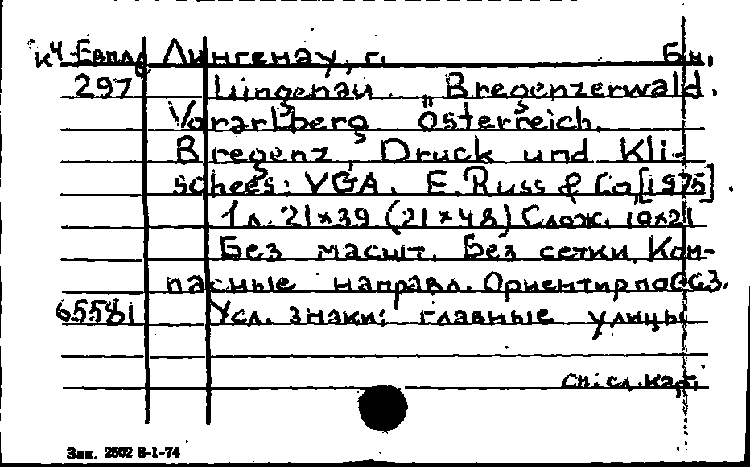 К4-Евпл Лингенау, г. Б.м.
297 Lingenau. Bregenzerwald.
Vorarlberg Österreich.
Bregenz, Druck und Kli-
schees: VGA. E. Russ & Co, [1975].
1 л. 21×39 (21×48) Слож. 10×21
Без масшт. Без сетки. Ком-
пасные направл. Ориентир по ССЗ.
65581 Усл. знаки: главные улицы
см. сл. кар.
Зак. 2502 В-1-74